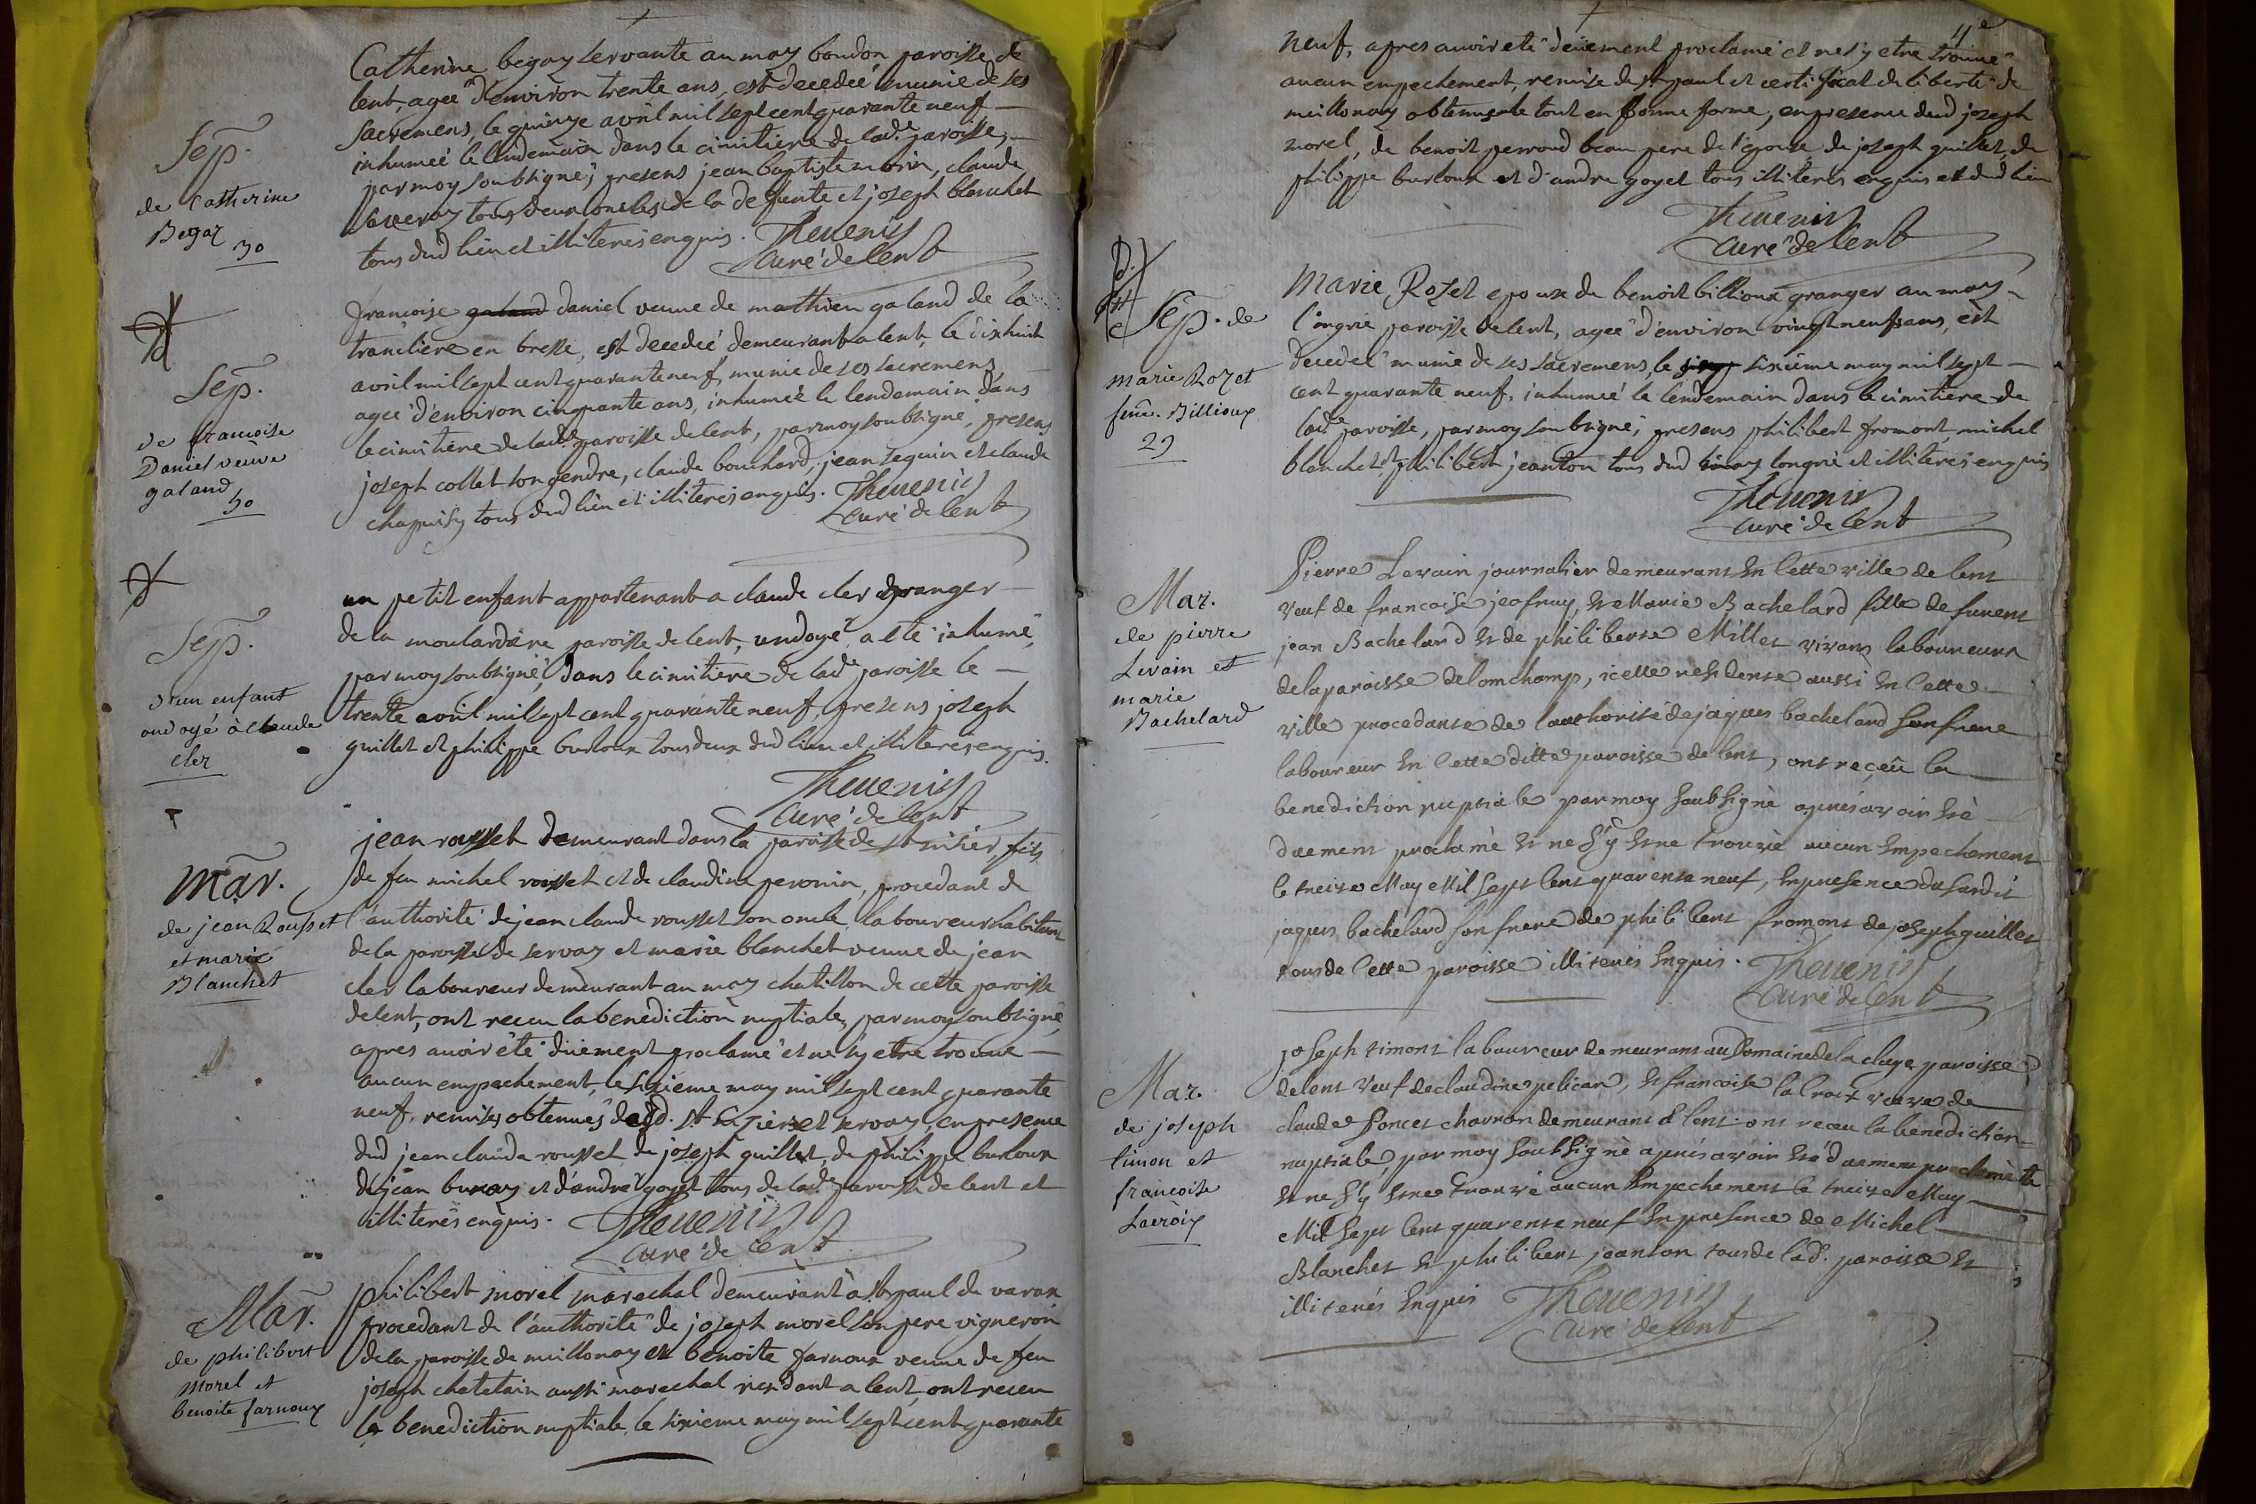 Sep.
de Catherine
Begoz
30
Catherine begoz servante au may boudon paroisse de
lent, ageé d'environ trente ans, est decedeé munie de ses
sacremens, le quinze avril mil sept cent quarante neuf
inhumeé le lendemain dans le cimitiere de lade paroisse,
par moy soubsigné; presens jean baptiste morin, claude
tous deux oncles de la defunte et joseph blanchet
tous dud lieu et illiterés enquis. Thevenin
curé de lent
Sep.
de francoise
Daniel veuve
galand
50
francoise galand daniel veuve de mathieu galand de la
trancliere en bresse, est decedeé demeurant a lent, le dixhuit
avril mil sept cent quarante neuf, munie de ses sacremens
ageé d'environ cinquante ans, inhumeé le lendemain dans
le cimitiere de lade paroisse de lent, par moy soubsigné, presens
joseph collet son gendre, claude bouchard, jean seguin et claude
chapuisy tous dud lieu et illiterés enquis. Thevenin
curé de lent
Sep.
d'un enfant
ondoyé à claude
cler
un petit enfant appartenant a claude cler granger
de la moulardiere paroisse de lent, ondoyé, a eté inhumé,
par moy soubsigné, dans le cimitiere de lade paroisse le
trente avril mil sept cent quarante neuf, presens joseph
guillet et philippe burloux tous deux dud lieu et illiterés enquis.
Thevenin
curé de lent
Mar.
de jean Rousset
et marie
Blanchet
jean rousset demeurant dans la paroisse de st nisier, fils
de feu michel rousset et de claudine peronin, procedant de
l'authorité de jean claude rousset son oncle, laboureur habitant
de la paroisse de servas et marie blanchet veuve de jean
cler laboureur demeurant au may chatillon de cette paroisse
de lent, ont receu la benediction nuptiale, par moy soubsigné,
apres avoir été düement proclamé et ne s'y etre trouvé
aucun empechement, le sixieme may mil sept cent quarante
neuf, remises obtenues desd. st nizier et servas, en presence
dud jean claude rousset, de joseph guillet, de philippe burloux
de jean buray et d'andré goyet tous de lade paroisse de lent et
illiterés enquis. Thevenin
curé de lent
Mar.
de philibert
morel et
benoite farnoux
philibert morel marechal demeurant a st paul de varax
procedant de l'authorité de joseph morel son pere vigneron
de la paroisse de meillonay et benoite farnoux veuve de feu
joseph chatelain aussi marechal residant a lent, ont receu
la benediction nuptiale le sixieme may mil sept cent quarante
4e
neuf, apres avoir eté düement proclamé et ne s'y etre trouvé
aucun empechement, remise de st paul et certificat de liberté de
meillonay obtenus le tout en bonne forme, en presence dud joseph
morel, de benoit perroud beau pere de l'epouse, de joseph guillet, de
philippe burloux et d'andre goyet tous illiterés enquis et dud lieu
Thevenin
curé de lent
Sep. de
marie Rozet
feme. Billioux
29
Marie Rozet epouse de benoit billioux granger au may
longrie paroisse de lent, ageé d'environ vingt neuf ans, est
decedeé munie de ses sacremens, le sixiéme may mil sept
cent quarante neuf, inhumeé le lendemain dans le cimitiere de
lade paroisse, par moy soubsigné; presens philibert fromont, michel
blanchet et philibert jeanton tous dud may longrie et illiterés enquis
Thevenin
curé de lent
Mar.
de pierre
Levain et
marie
Bachelard
Pierre Levain journalier demeurant En Cette ville de lent
veuf de francoise jeofray, Et Marie Bachelard fille de furent
jean Bachelard Et de philiberte Millet vivans laboureurs
de la paroisse de lonchamp, icelle residente aussi En Cette
ville procedante de l'authorité de jaques bachelard son frere
laboureur En Cette ditte paroisse de lent, ont reçeû la
benediction nuptiale par moy Soubsigné aprés avoir Eté
duement proclamé Et ne S'y Etre trouvé aucun Empechement
le treize May Mil Sept Cent quarente neuf, En presence du Susdit
jaques bachelard son frere de philibert fromont de joseph guillet
tous de Cette paroisse illiterés Enquis. Thevenin
Curé de lent
Mar.
de joseph
timon et
francoise
Lacroix
joseph timont laboureur demeurant au Domaine de la claye paroisse
de lent veuf de claudine pelican, Et francoise la Croix veuve de
claude Poncet charron demeurant a lent ont receu la benediction
nuptiale par moy Soubsigné aprés avoir Eté duement proclamé
Et ne S'y Etre trouvé aucun Empechement le treize May
Mil Sept Cent quarente neuf En presence de Michel
Blanchet Et philibert jeanton tous de lad. paroisse Et
illiterés Enquis Thevenin
Curé de lent